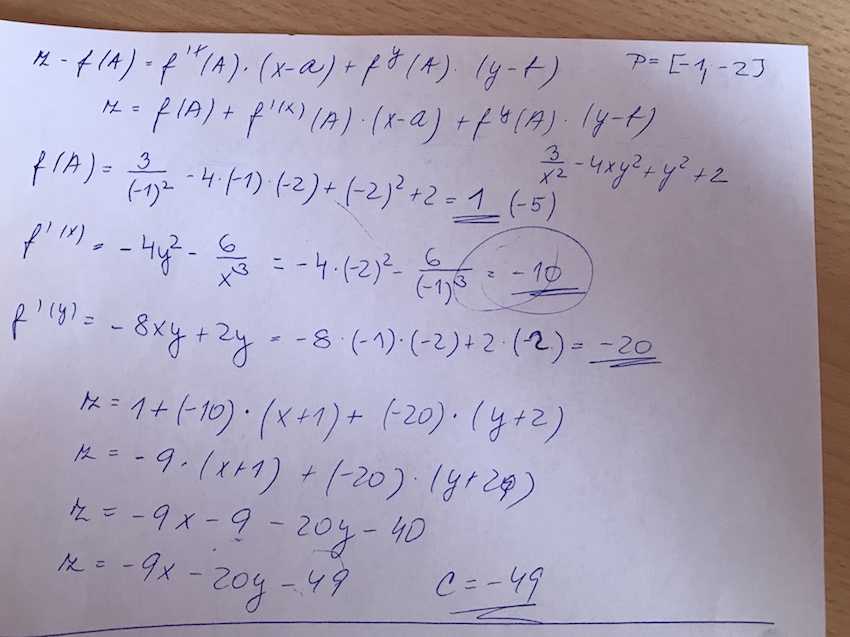 z - f(A) = f'x(A)·(x-a) + f'y(A)·(y-b) P = [-1, -2]
z = f(A) + f'(x)(A)·(x-a) + f'y(A)·(y-b)
3/x² - 4xy² + y² + 2
f(A) = 3/(-1)² - 4·(-1)·(-2) + (-2)² + 2 = 1 (-5)
f'(x) = -4y² - 6/x³ = -4·(-2)² - 6/(-1)³ = -10
f'(y) = -8xy + 2y = -8·(-1)·(-2) + 2·(-2) = -20
z = 1 + (-10)·(x+1) + (-20)·(y+2)
z = -9·(x+1) + (-20)·(y+2)
z = -9x - 9 - 20y - 40
z = -9x - 20y - 49 C = -49